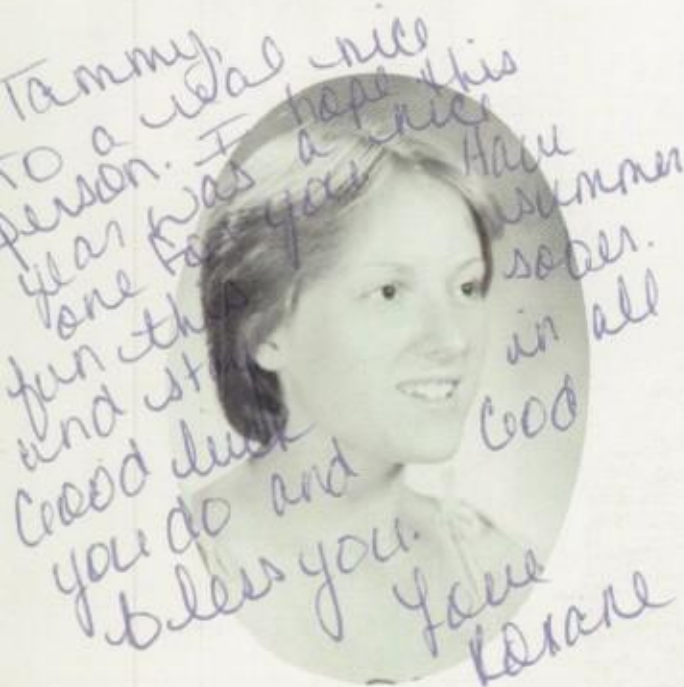 Tammy,
To a real nice
person. I hope this
year was a nice
one for you. Have
fun this summer
and st sober.
Good luck in all
you do and God
bless you.
Love
Roxane